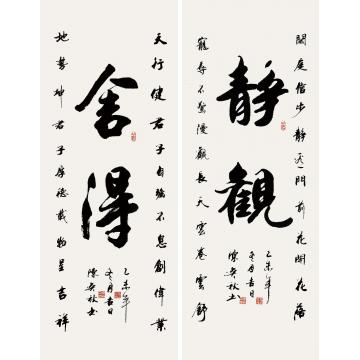 閑庭信步靜門前花開花落
靜觀
乙未年
冬月吉日
書
寵辱不驚漫觀長天雲卷雲舒
天行健君子自強不息創偉業
舍得
乙未年
冬月吉日
書
地勢坤君子厚德載物呈吉祥